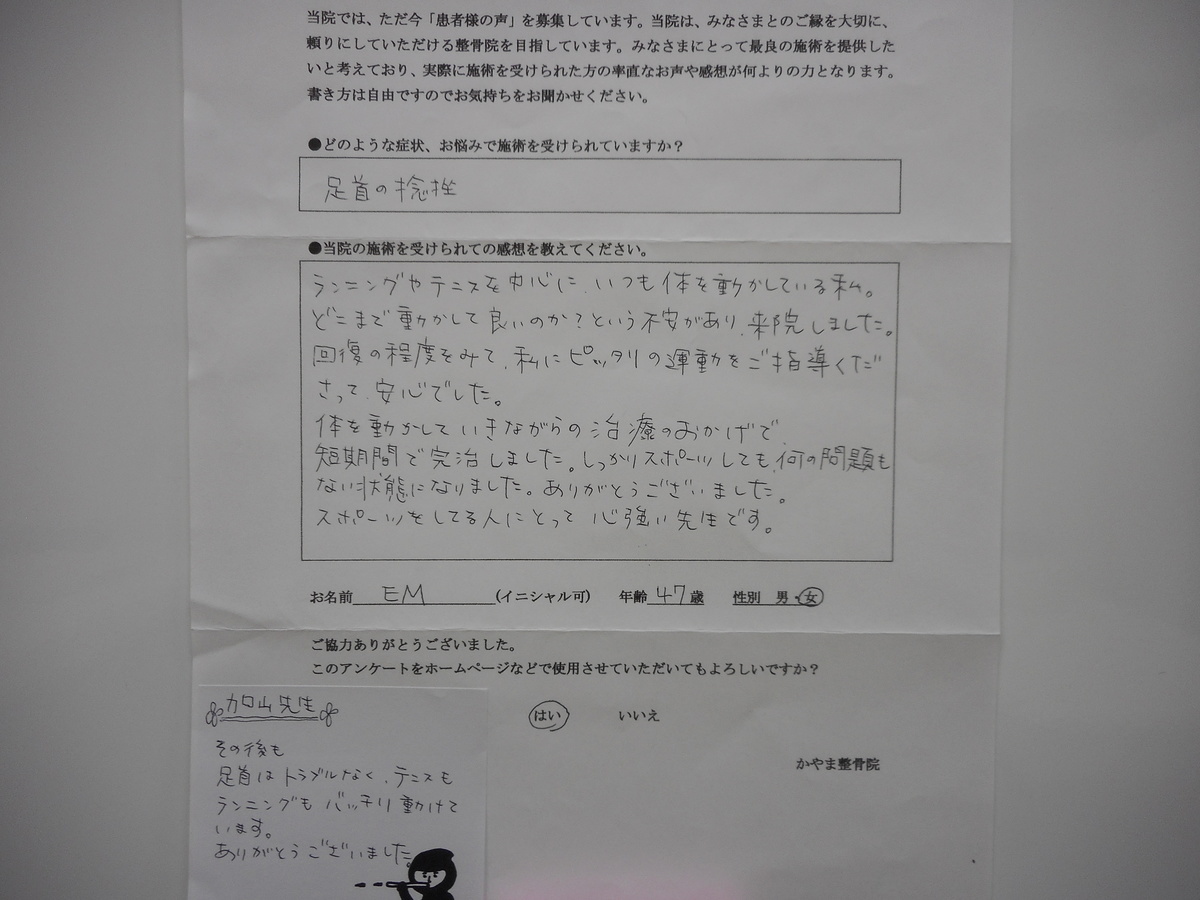 当院では、ただ今「患者様の声」を募集しています。当院は、みなさまとのご縁を大切に、
頼りにしていただける整骨院を目指しています。みなさまにとって最良の施術を提供した
いと考えており、実際に施術を受けられた方の率直なお声や感想が何よりの力となります。
書き方は自由ですのでお気持ちをお聞かせください。
●どのような症状、お悩みで施術を受けられていますか？
足首の捻挫
●当院の施術を受けられての感想を教えてください。
ランニングやテニスを中心に、いつも体を動かしている私。
どこまで動かして良いのか？という不安があり、来院しました。
回復の程度をみて、私にピッタリの運動をご指導くだ
さって、安心でした。
体を動かしていきながらの治療のおかげで、
短期間で完治しました。しっかりスポーツしても、何の問題も
ない状態になりました。ありがとうございました。
スポーツをしてる人にとって心強い先生です。
お名前 EM (イニシャル可) 年齢 47 歳 性別 男・女
ご協力ありがとうございました。
このアンケートをホームページなどで使用させていただいてもよろしいですか？
はい いいえ
かやま整骨院
加山先生
その後も
足首はトラブルなく、テニスも
ランニングもバッチリ動けて
います。
ありがとうございました。